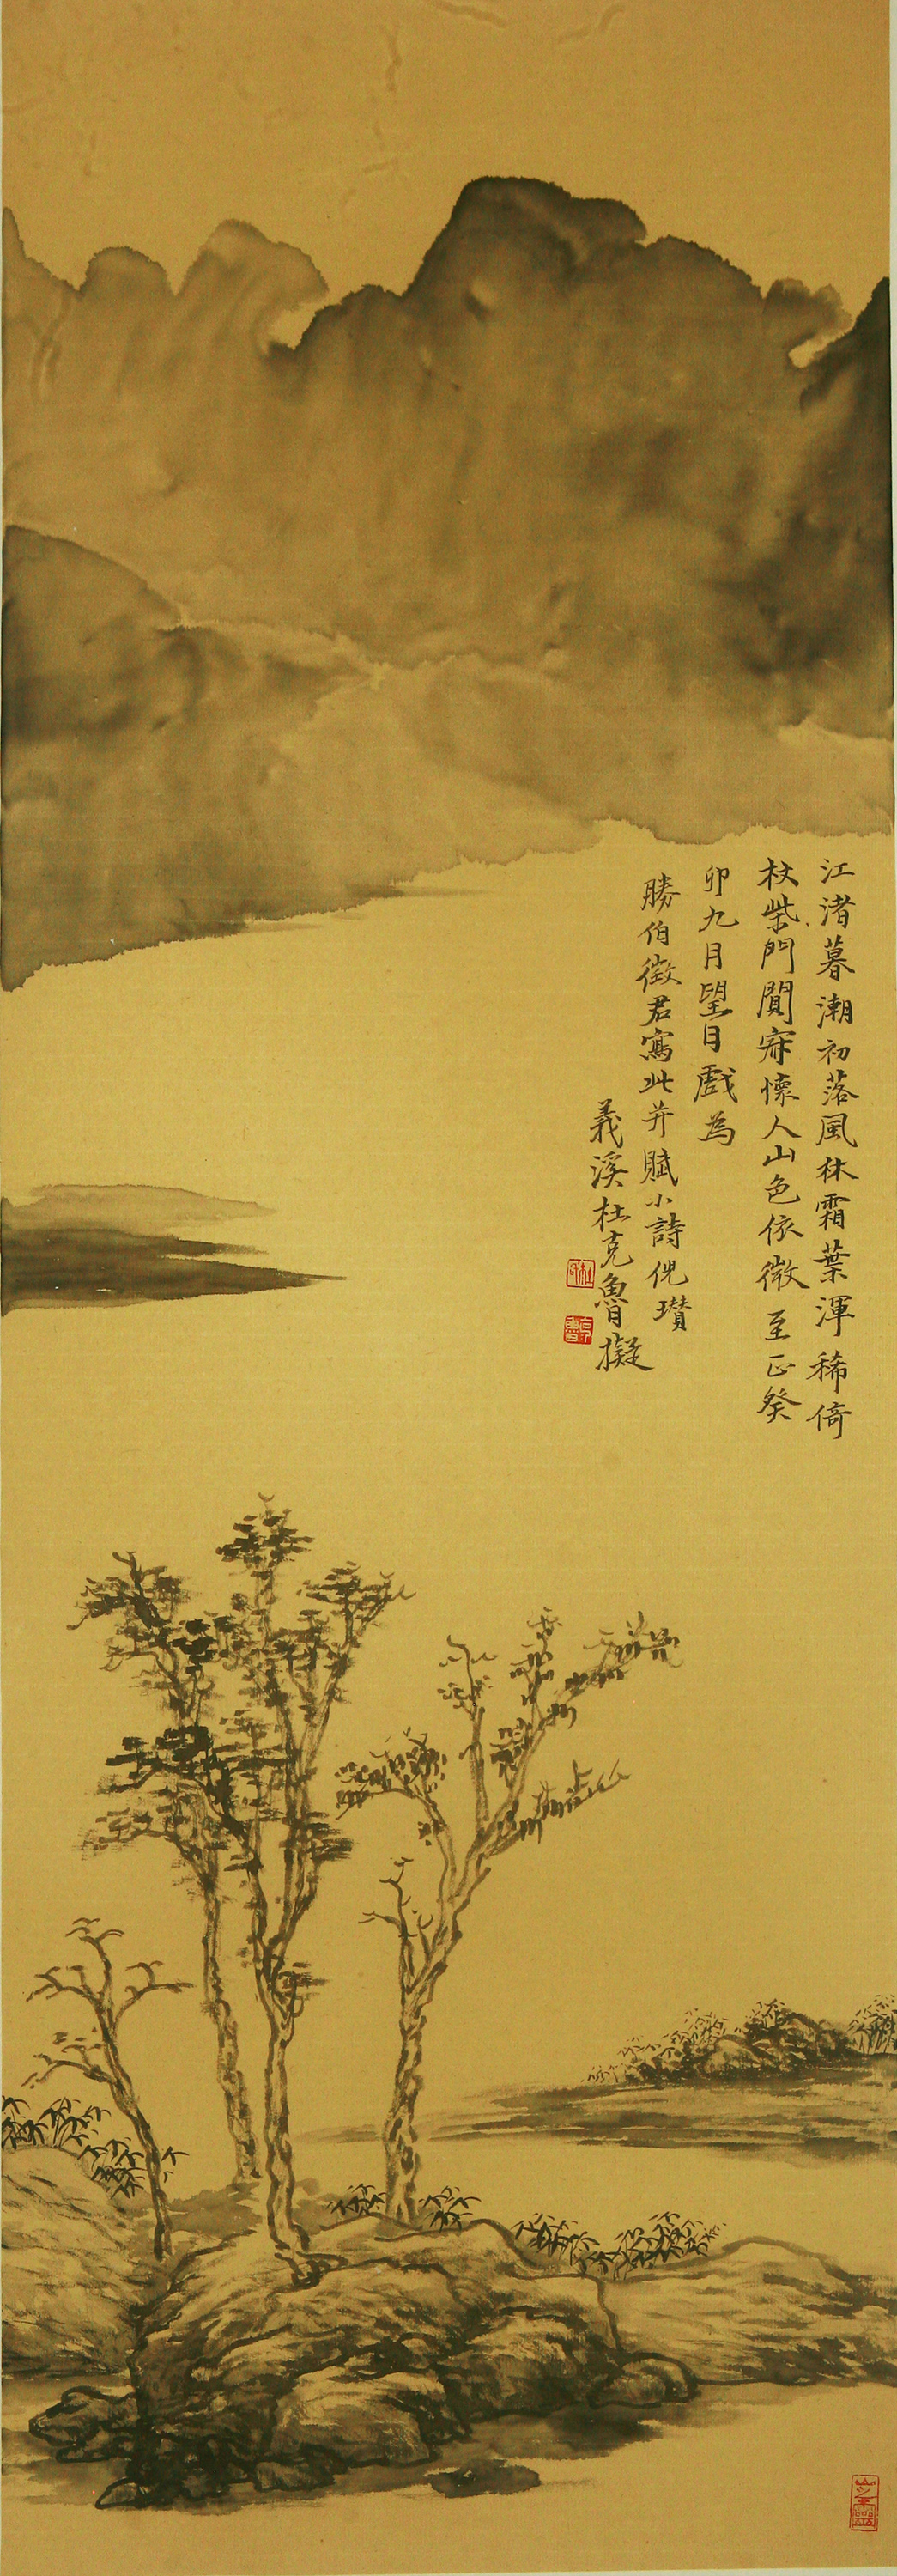 江渚暮潮初落風林霜葉渾稀倚
杖柴門闃寂懷人山色依微至正癸
卯九月望日戲為
勝伯徵君寫此并賦小詩倪瓚
義溪杜克魯擬